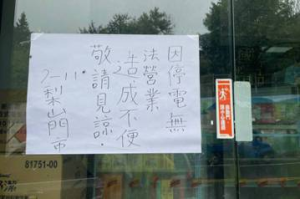 因停電無
法營業
造成不便
敬請見諒.
7-11.
梨山門市
81751-00